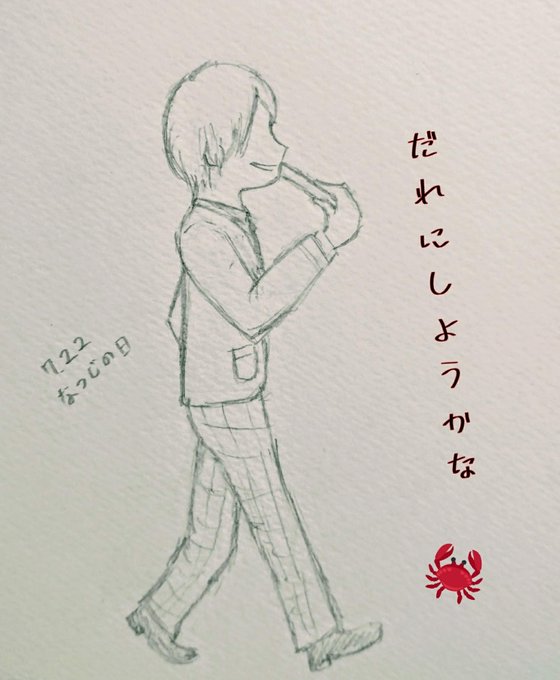 だれにしようかな
7.22
なつじの日